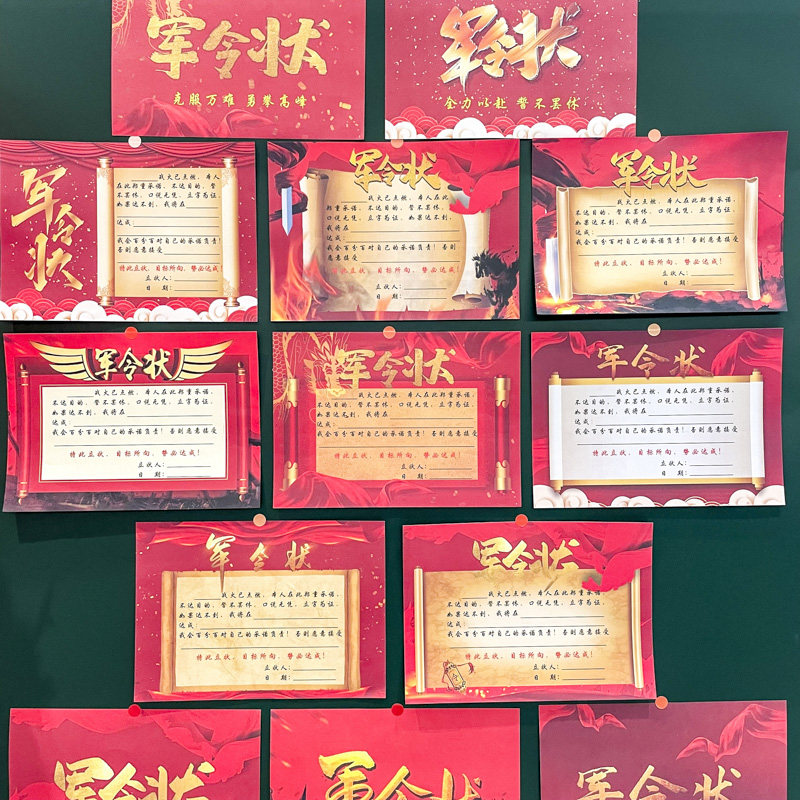 军令状
克服万难 勇攀高峰
军令状
全力以赴 誓不罢休
军令状
战火已点燃，本人
在此郑重承诺，不达目的，誓
不罢休，口说无凭，立字为证，
如果达不到，我将在
达成：
我会百分百对自己的承诺负责！否则
愿意接受
特此立状，目标所向，誓必达成！
立状人：
日期：
军令状
战火已点燃，本人在此
郑重承诺，不达目的，誓不罢休，
口说无凭，立字为证，如果达不到，
我将在
达成：
我会百分百对自己的承诺负责！否则
愿意接受
特此立状，目标所向，誓必达成！
立状人：
日期：
军令状
战火已点燃，本人在此郑重承诺，
不达目的，誓不罢休，口说无凭，立字为证，
如果达不到，我将在
达成：
我会百分百对自己的承诺负责！否则愿意接受
特此立状，目标所向，誓必达成！
立状人：
日期：
军令状
战火已点燃，本人在此郑重承诺，
不达目的，誓不罢休，口说无凭，立字为证，
如果达不到，我将在
达成：
我会百分百对自己的承诺负责！否则愿意接受
特此立状，目标所向，誓必达成！
立状人：
日期：
军令状
战火已点燃，本人在此郑重承诺，
不达目的，誓不罢休，口说无凭，立字为证，
如果达不到，我将在
达成：
我会百分百对自己的承诺负责！否则愿意接受
特此立状，目标所向，誓必达成！
立状人：
日期：
军令状
战火已点燃，本人在此郑重承诺，
不达目的，誓不罢休，口说无凭，立字为证，
如果达不到，我将在
达成：
我会百分百对自己的承诺负责！否则愿意接受
特此立状，目标所向，誓必达成！
立状人：
日期：
军令状
战火已点燃，本人在此郑重承诺，
不达目的，誓不罢休，口说无凭，立字为证，
如果达不到，我将在
达成：
我会百分百对自己的承诺负责！否则愿意接受
特此立状，目标所向，誓必达成！
立状人：
日期：
军令状
战火已点燃，本人在此郑重承诺，
不达目的，誓不罢休，口说无凭，立字为证，
如果达不到，我将在
达成：
我会百分百对自己的承诺负责！否则愿意接受
特此立状，目标所向，誓必达成！
立状人：
日期：
军令状
军令状
军令状